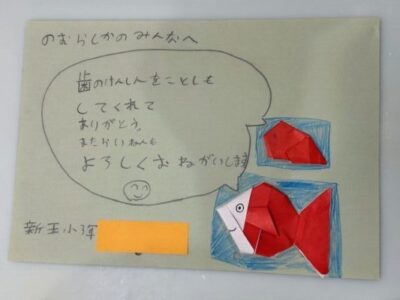 のむらしかのみんなへ
歯のけんしんをことしも
してくれて
ありがとう。
またらいねんも
よろしくおねがいします
新玉小2年